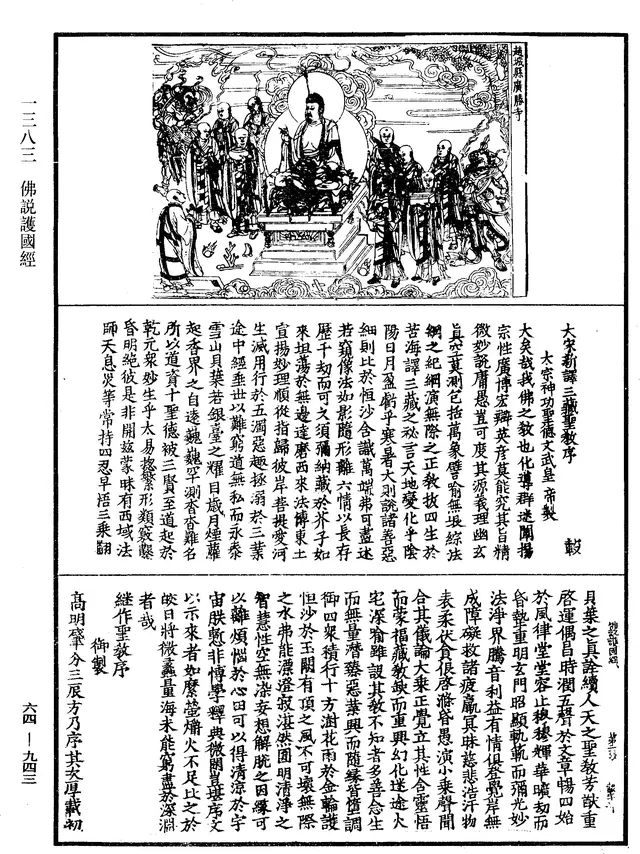 趙城縣廣勝寺
一三八三　佛說護國經
大宋新譯三藏聖教序
太宗神功聖德文武皇帝製
大矣哉我佛之教也化導群迷闡揚
宗性廣博宏辯英彥莫能究其旨精
微妙說庸愚豈可度其源義理幽玄
真空莫測包括萬象譬喻無垠綜法
網之紀綱演無際之正教拔四生於
苦海譯三藏之祕言天地變化乎陰
陽日月盈虧乎寒暑大則說諸善惡
細則比於恒沙含識萬端弗可盡述
若窺像法如影隨形離六情以長存
歷千劫而可久須彌納藏於芥子如
來坦蕩於無邊達磨西來法傳東土
宣揚妙理順從指歸彼岸菩提愛河
生滅用行於五濁惡趣拯溺於三業
途中經垂世以難窮道無私而永泰
雪山貝葉若銀臺之耀目歲月煙蘿
起香界之自遠巍巍罕測杳杳難名
所以道資十聖德被三賢至道起於
乾元眾妙生乎太易摠繁形類竅鑿
昏明絕彼是非開茲蒙昧有西域法
師天息災等常持四忍早悟三乘翻
貝葉之真詮續人天之聖教芳猷重
啟運偶昌時潤五聲於文章暢四始
於風律堂堂容止穆穆輝華曠劫而
昏蟄重明玄門昭顯軌範而彌光妙
法淨界騰音利益有情俱登覺岸無
成障礙救諸疲羸冥昧慈悲浩汗物
表柔伏貪佷啟滌昏愚演小乘聲聞
合其儀論大乘正覺立其性含靈悟
而蒙福藏教缺而重興幻化迷途火
宅深喻雖設其教不知者多善念生
而無量潛臻惡業興而隨緣皆墮調
御四眾積行十方澍花雨於金輪護
恒沙於玉闕有頂之風不可壞無際
之水弗能漂澄寂湛然圓明清淨之
智慧性空無染妄想解脫之因緣可
以離煩惱於心田可以得清涼於宇
宙朕慙非博學釋典微閑豈堪序文
以示來者如縻螢爝火不足比之於
皎日將微蠡量海未能窮盡於深淵
者哉
繼作聖教序
御製
高明肇分三辰方乃序其次厚載初
六四—九四三